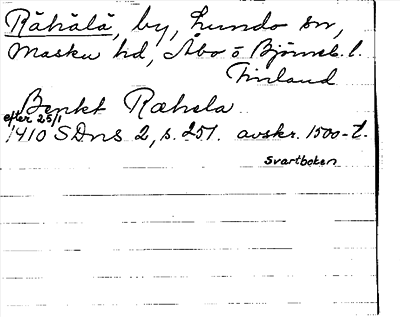 Råhålå, by, Lundo sn,
Masku hd, Åbo o Björneb. l.
Finland
Benkt Ræhala
efter 25/1
1410 SDns 2, s. 251. avskr. 1500-t.
Svartboken